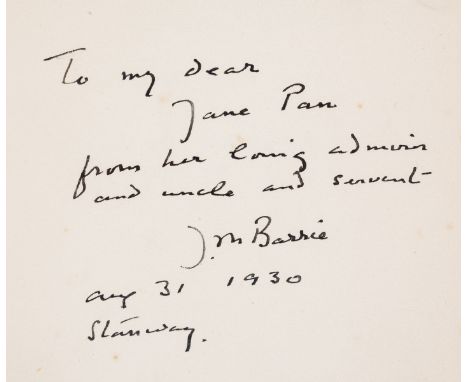 To my dear
Jane Pan
from her loving admirer
and uncle and servant
J. M Barrie
aug 31 1930
Stanway.